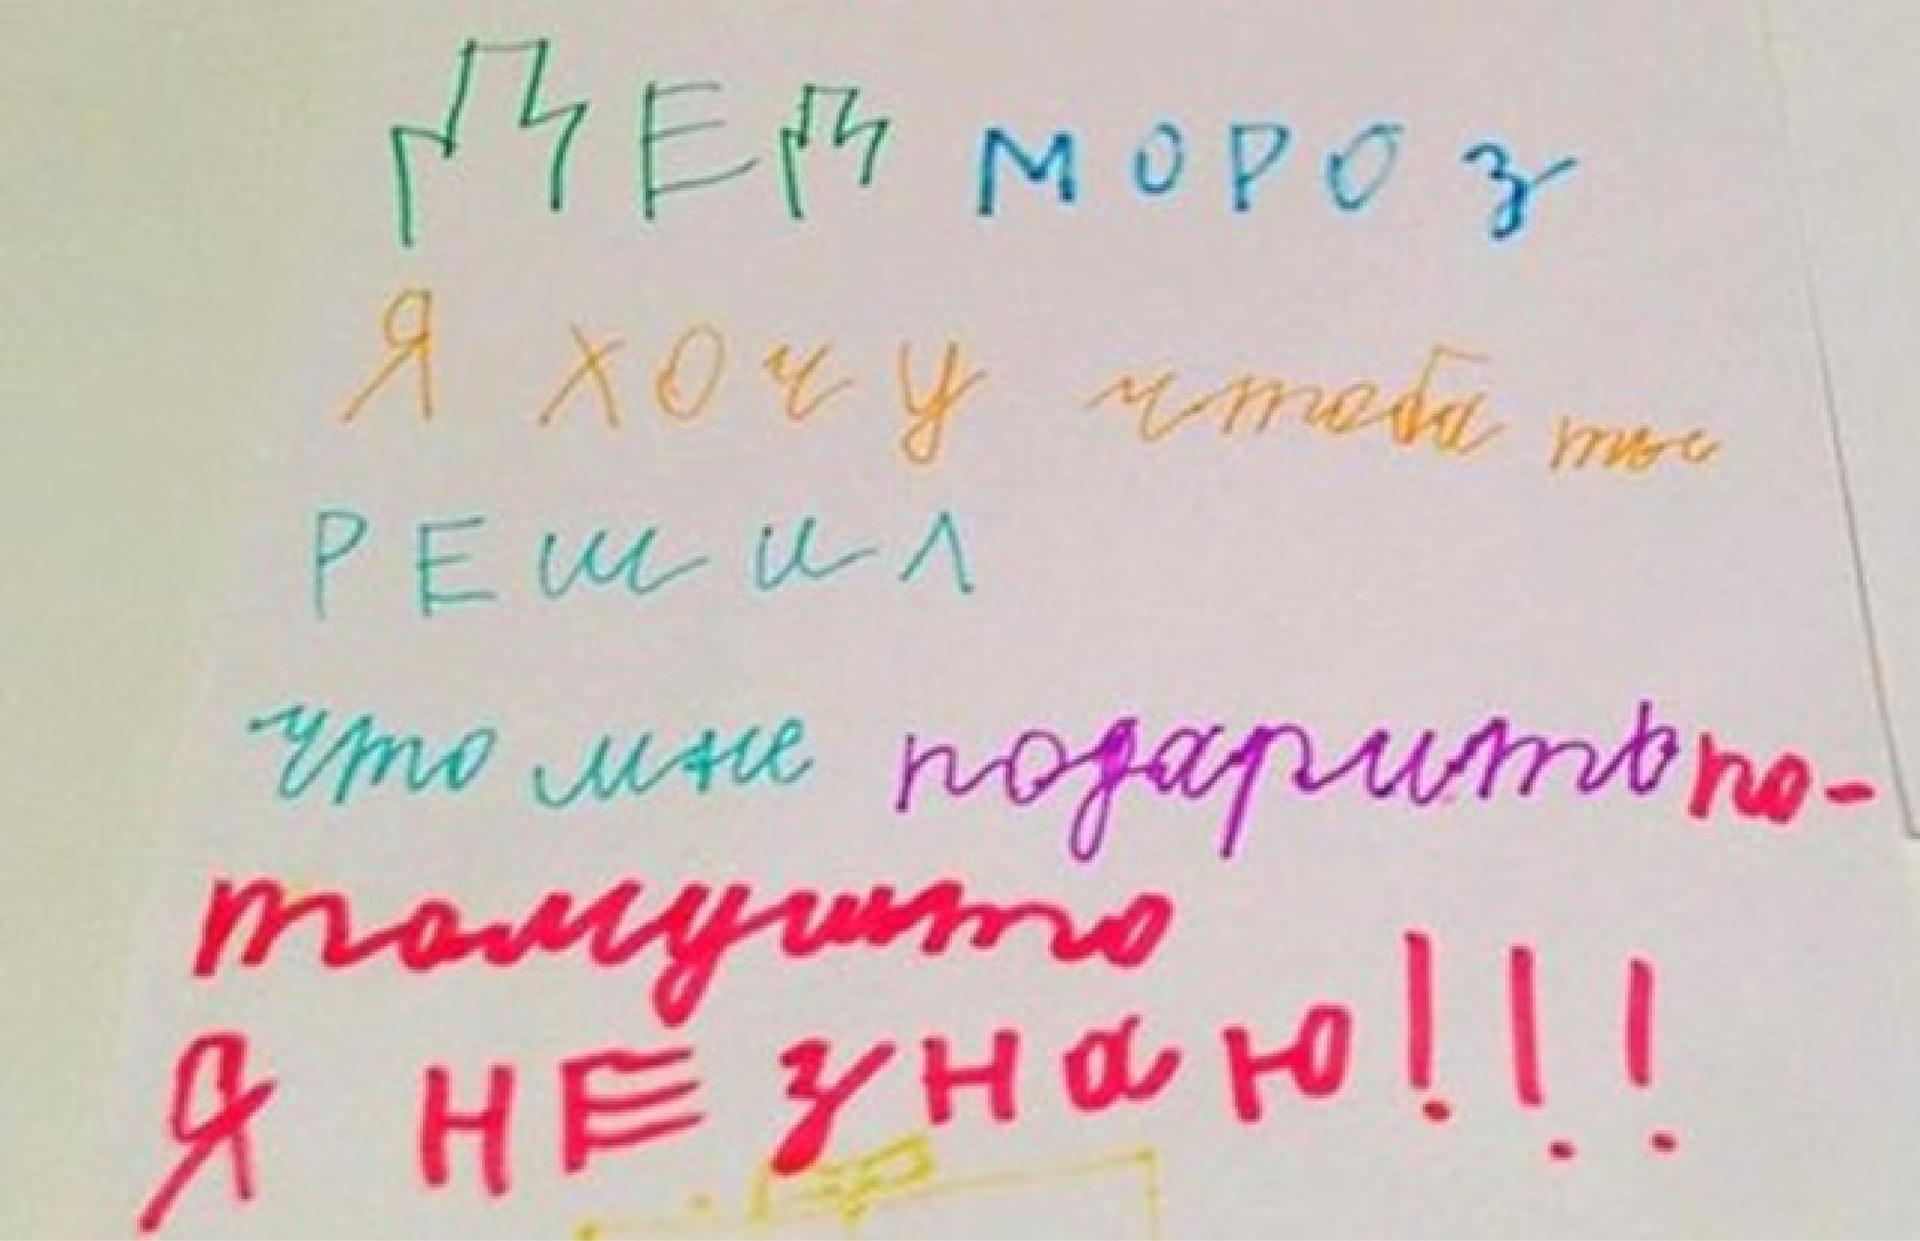 ДЕД МОРОЗ
Я ХОЧУ чтоба ты
РЕШИЛ
что мне подарить по-
томушто
Я НЕ ЗНаю!!!